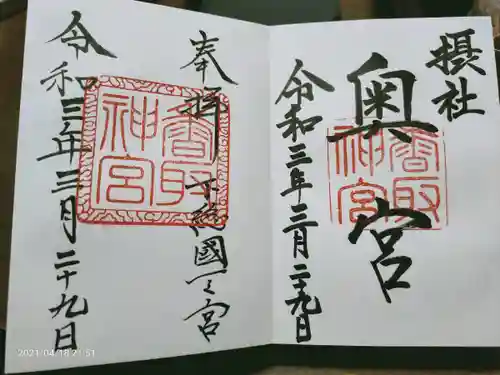 摂社
奥宮
令和三年三月二十九日
香取
神宮
奉拝 下総國一之宮
香取
神宮
令和三年三月二十九日
2021/04/18 21:51